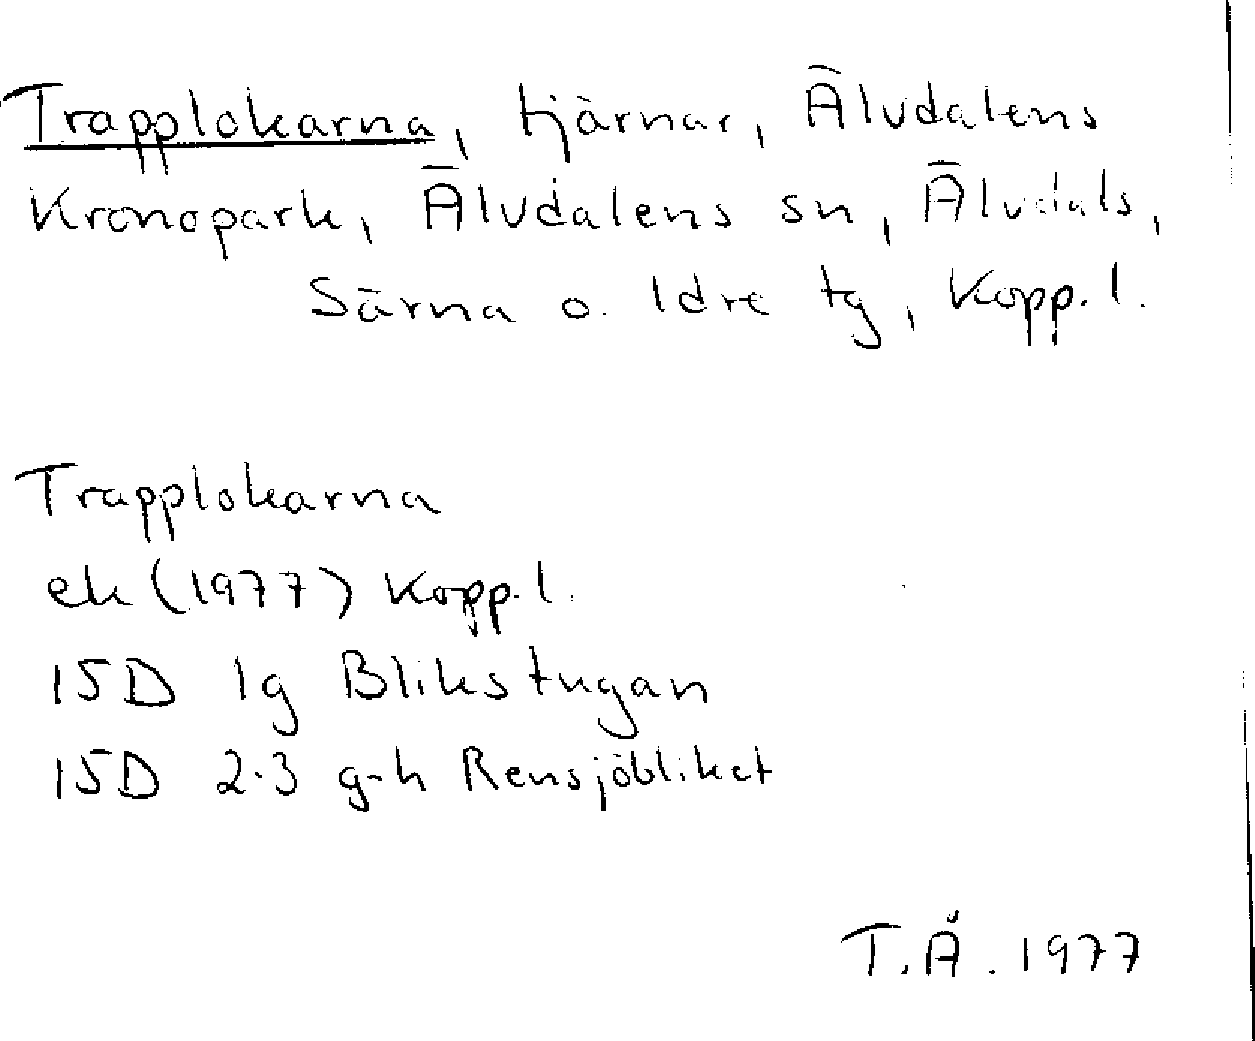 Trapplokarna, tjärnar, Älvdalens
Kronopark, Älvdalens sn, Älvdals,
Särna o. Idre tg, Kopp. l.
Trapplokarna
ek (1977) Kopp. l.
15D 1g Blikstugan
15D 2-3 g-h Rensjöbliket
T.Å. 1977